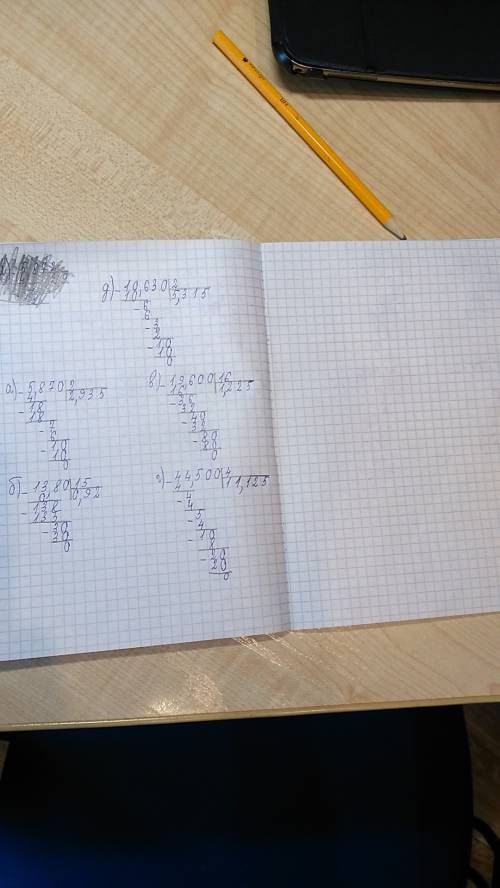 д) - 10,630 | 2
10 | 5,315
- 6
6
- 3
2
- 10
10
0
а) - 5,870 | 2
4 | 2,935
- 18
18
- 7
6
- 10
10
0
в) - 19,600 | 16
16 | 1,225
- 36
32
- 40
32
- 80
80
0
б) - 13,80 | 15
0 | 0,92
- 138
135
- 30
30
0
г) - 44,500 | 4
4 | 11,125
- 4
4
- 5
4
- 10
8
- 20
20
0